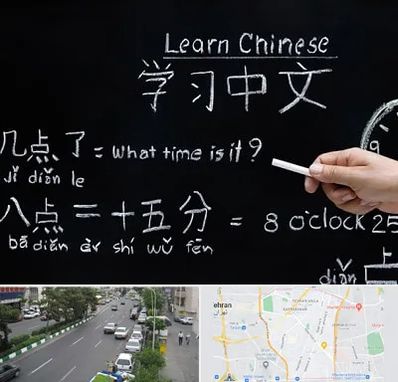 Learn Chinese
学习中文
几点了 = What time is it?
jǐ diǎn le
9
八点二十五分 = 8 o'clock 25
bā diǎn èr shí wǔ fēn
diǎn
ehran
تهران